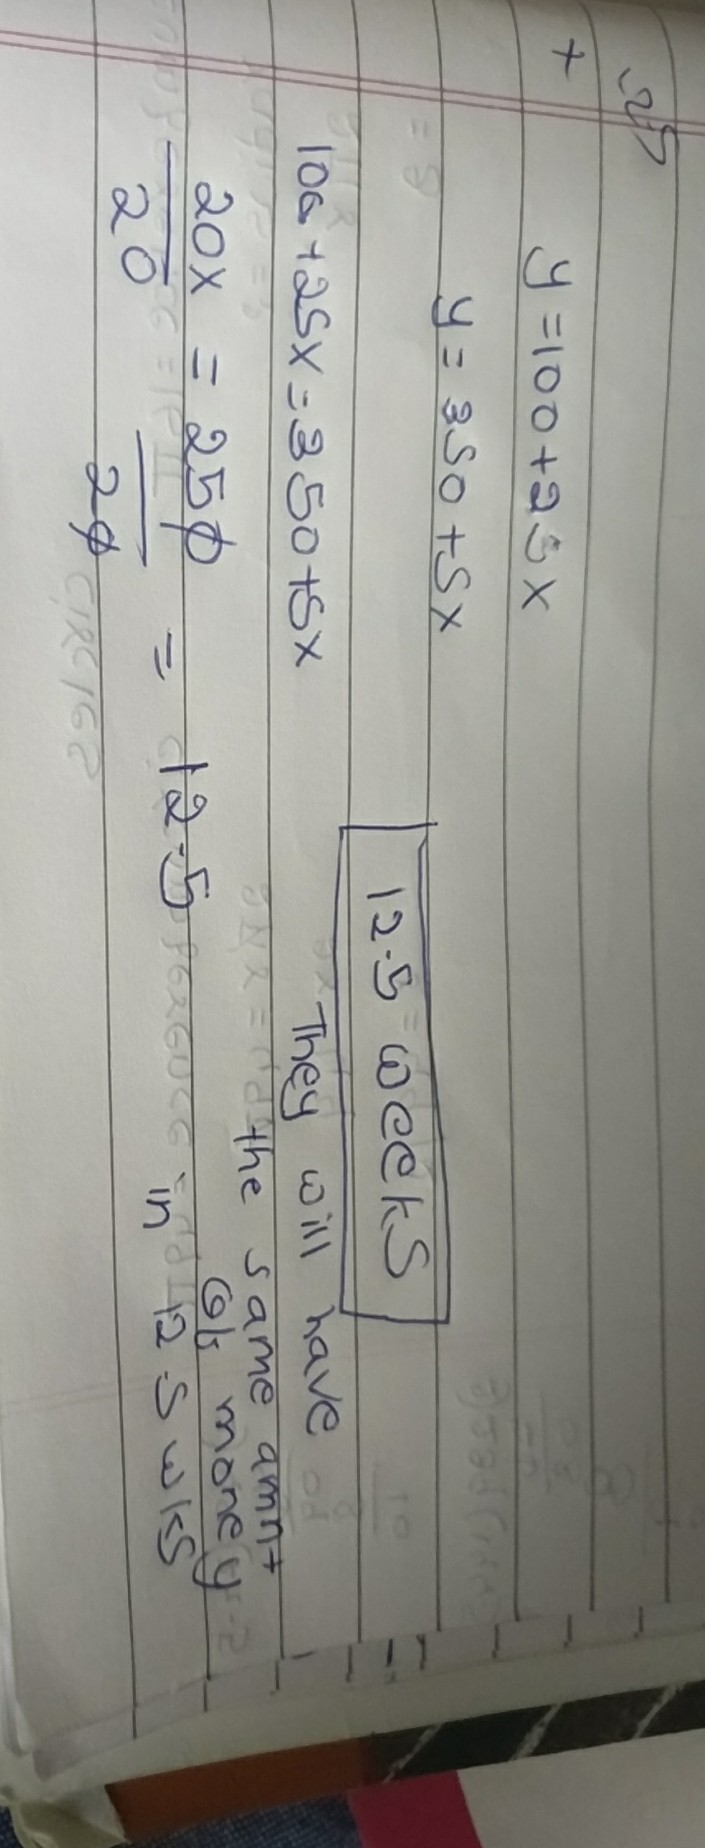 .25
+
y = 100 + 25x
y = 350 + 5x
12.5 weeks
100 + 25x = 350 + 5x
They will have
the same amnt
of money
in 12.5 wks
20x = 250
20 20
= 12.5